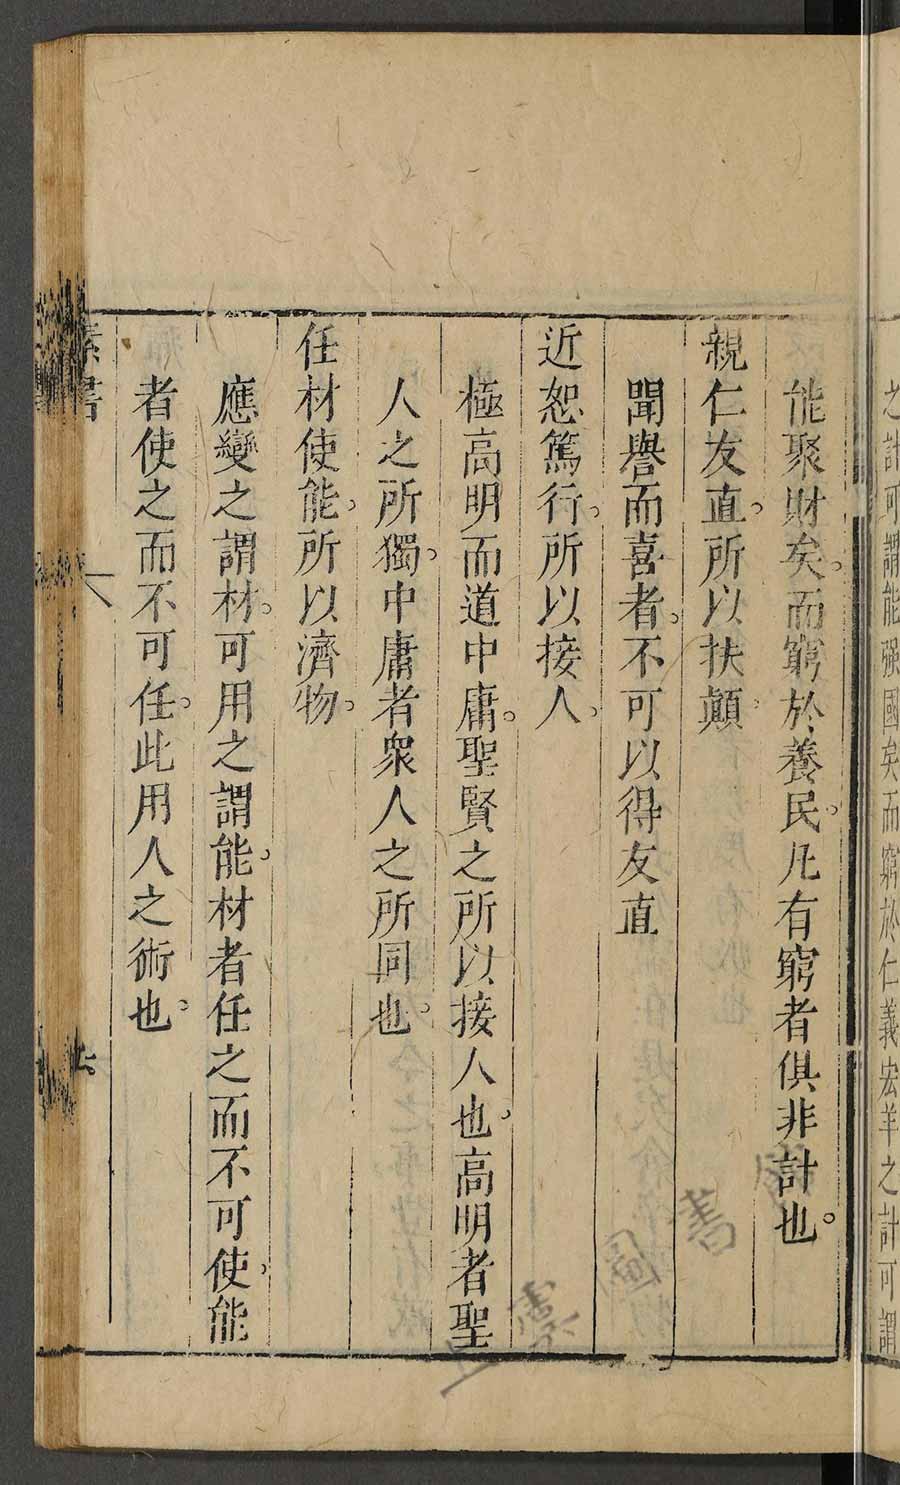 之計可謂能强國矣而窮於仁義宏羊之計可謂
能聚財矣。而窮於養民。凡有窮者俱非計也。
親仁友直。所以扶顛。
聞譽而喜者。不可以得友直
近恕篤行。所以接人。
極高明而道中庸。聖賢之所以接人也。高明者聖
人之所獨。中庸者衆人之所同也。
任材使能。所以濟物。
應變之謂材。可用之謂能。材者任之而不可使。能
者使之而不可任。此用人之術也。
素書
八